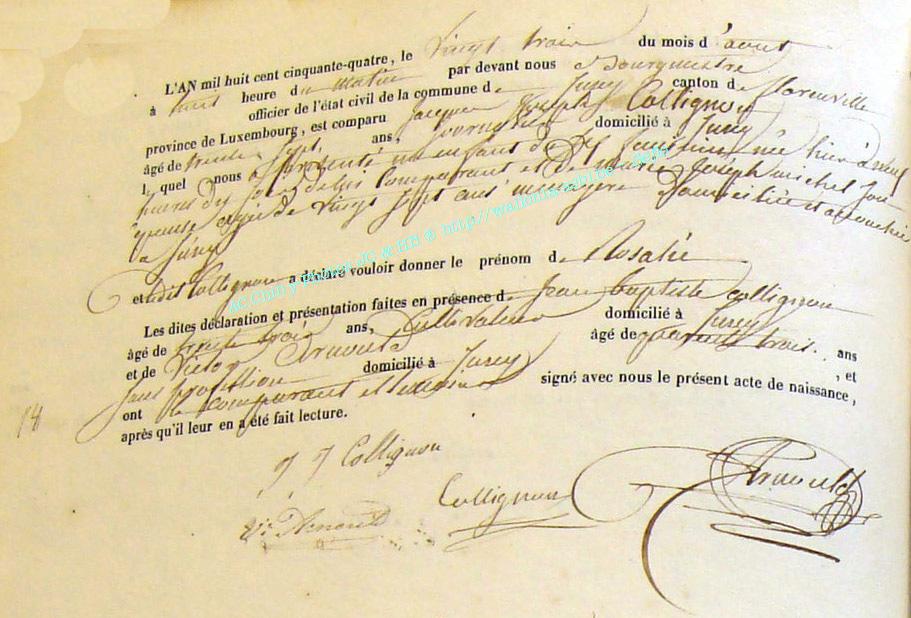 L'AN mil huit cent cinquante-quatre, le vingt trois du mois d'aout
à huit heure du matin par devant nous Bourgmestre
officier de l'état civil de la commune de Jzuy canton de florenville
province de Luxembourg, est comparu Jacques Joseph Collignon
âgé de trente Sept ans, journalier domicilié à
lequel nous a présenté un enfant du né hier à neuf
heures du Soir de lui Comparant et de marie Joseph michel Son
épouse agée de vingt Sept ans ménagère Domiciliée et accouchée
à
et ledit Collignon a déclaré vouloir donner le prénom de Rosalie
Les dites déclaration et présentation faites en présence de Jean baptiste Collignon
âgé de trente trois ans, Cultivateur domicilié à
et de Victor Arnould âgé de quarante trois ans
Sans profession domicilié à , et
ont le comparant et témoins signé avec nous le présent acte de naissance,
après qu'il leur en a été fait lecture.
14
J J Collignon
Vr Arnould Collignon Arnould
AC Chiny Photos JC & HB © http://wallonia-asbl.be